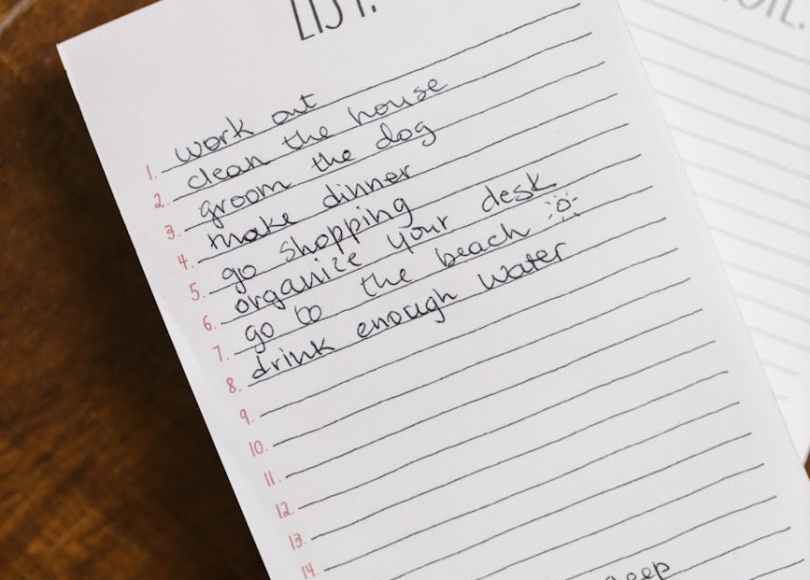 LIST.
1. work out
2. clean the house
3. groom the dog
4. make dinner
5. go shopping
6. organize your desk
7. go to the beach
8. drink enough water
9.
10.
11.
12.
13.
14.